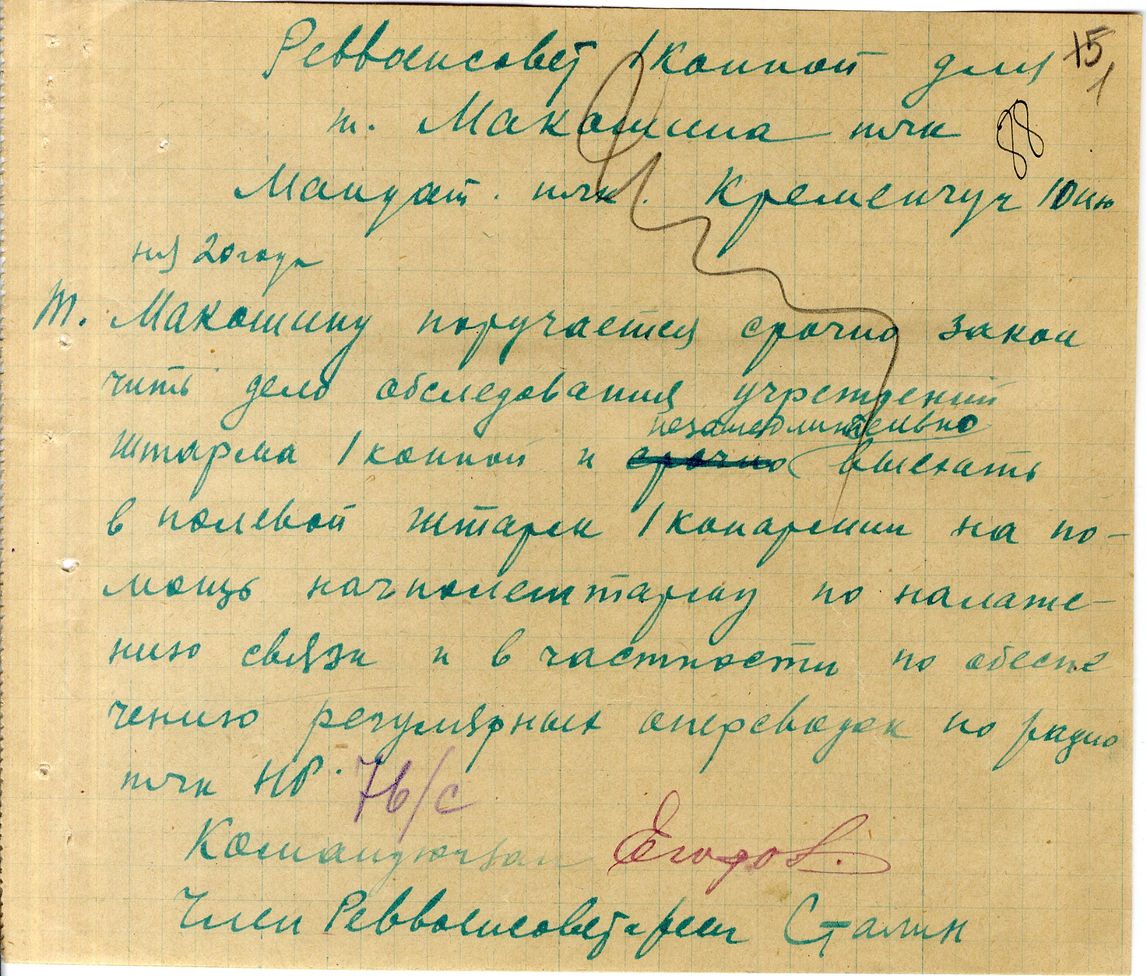 Реввоенсовет 1 Конной для 15
1
т. Макошина тчк 98
Мандат. тчк. Кременчуг 10 ию
ня 20 года
Т. Макошину поручается срочно закон
чить дело обследования учреждений
незамедлительно
штарма 1 конной и срочно выехать
в полевой штарм 1 конармии на по-
мощь начполештарму по налаже-
нию связи и в частности по обеспе
чению регулярных оперсводок по радио
тчк НР. 76/с
Командюгзап Егоров.
Член Реввоенсовета респ Сталин